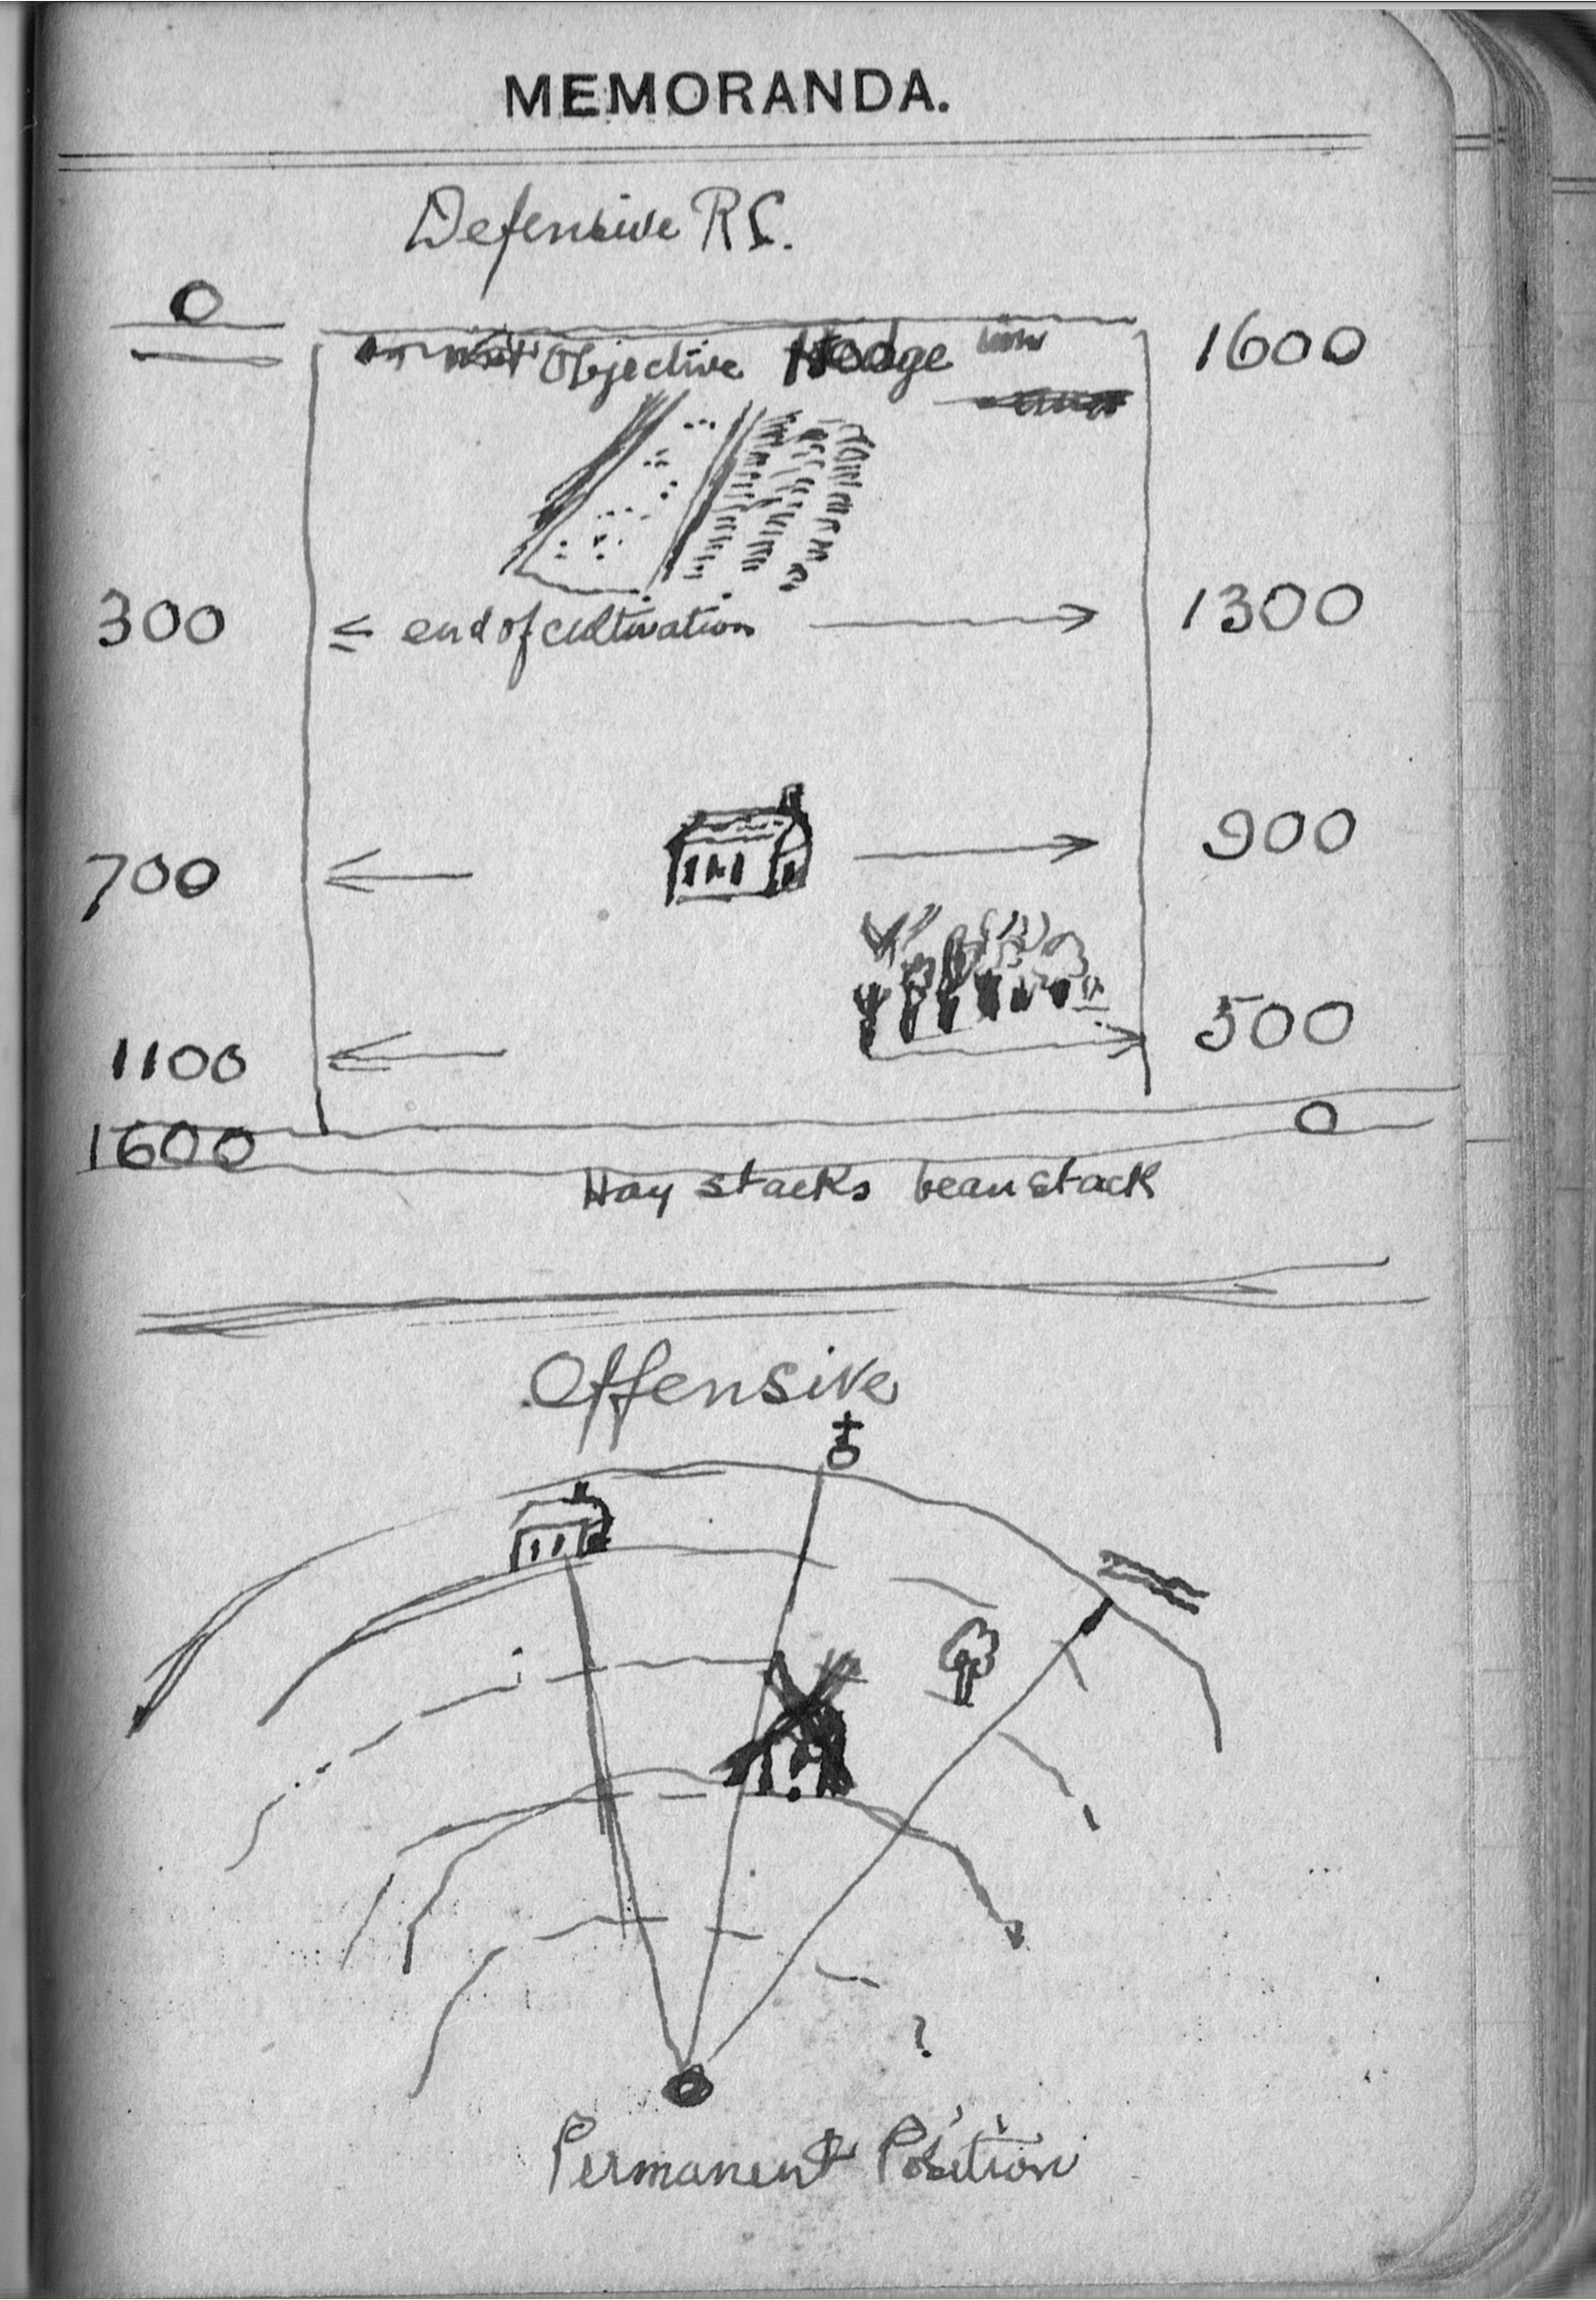 MEMORANDA.
Defensive R.C.
0
Objective Hedge
1600
300
end of cultivation
1300
900
700
500
1100
0
1600
Hay stacks bean stack
Offensive
?
Permanent Position